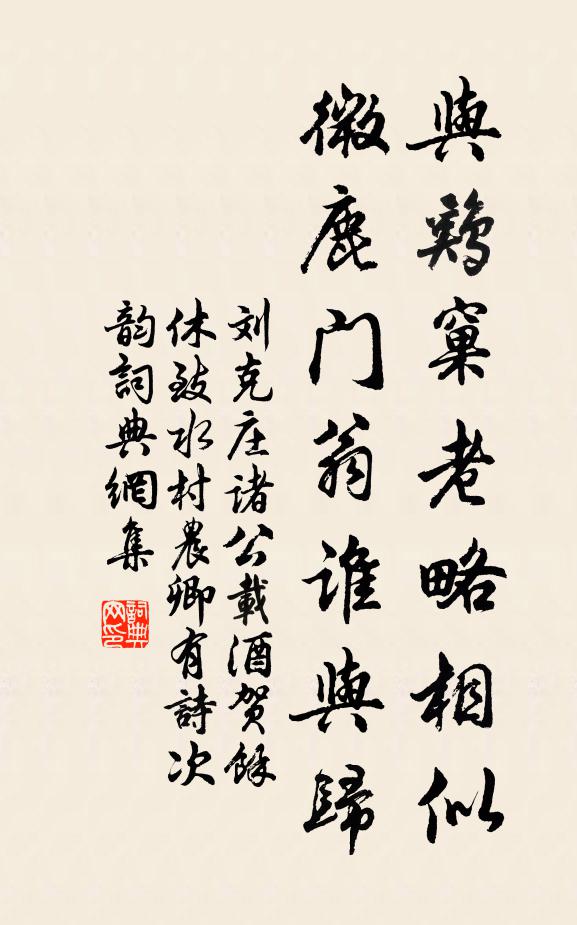 與鷄窠老略相似
微鹿門翁誰與歸
刘克庄诸公載酒贺餘
休致水村農卿有詩次
韵詞典網集
詞典
网印